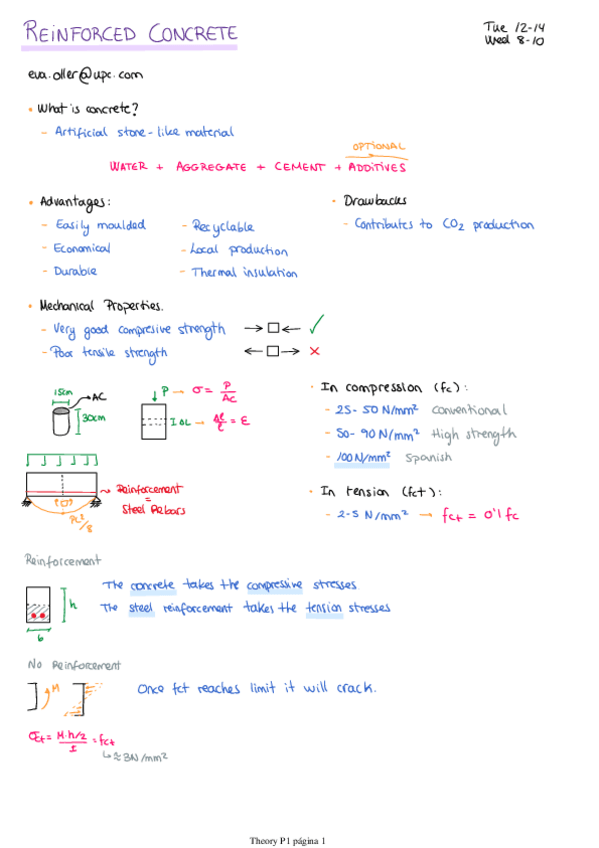 REINFORCED CONCRETE
Tue 12-14
Wed 8-10
eva.oller@upc.com
• What is concrete?
- Artificial stone-like material
OPTIONAL
WATER + AGGREGATE + CEMENT + ADDITIVES
• Advantages:
- Easily moulded
- Economical
- Durable
- Recyclable
- Local production
- Thermal insulation
• Drawbacks
- Contributes to CO2 production
• Mechanical Properties.
- Very good compresive strength → □ ← ✓
- Poor tensile strength ← □ → ×
15cm
AC
30cm
↓ P → σ = P/Ac
I ΔL → ΔL/L = ε
Reinforcement
=
Steel Rebars
PL²/8
• In compression (fc):
- 25-50 N/mm² Conventional
- 50-90 N/mm² High strength
- 100 N/mm² Spanish
• In tension (fct):
- 2-5 N/mm² → fct = 0'1 fc
Reinforcement
h
b
The concrete takes the compressive stresses.
The steel reinforcement takes the tension stresses
No Reinforcement
M
Once fct reaches limit it will crack.
σct = M·h/2 / I = fct
↳ ≈ 3N/mm²
Theory P1 página 1